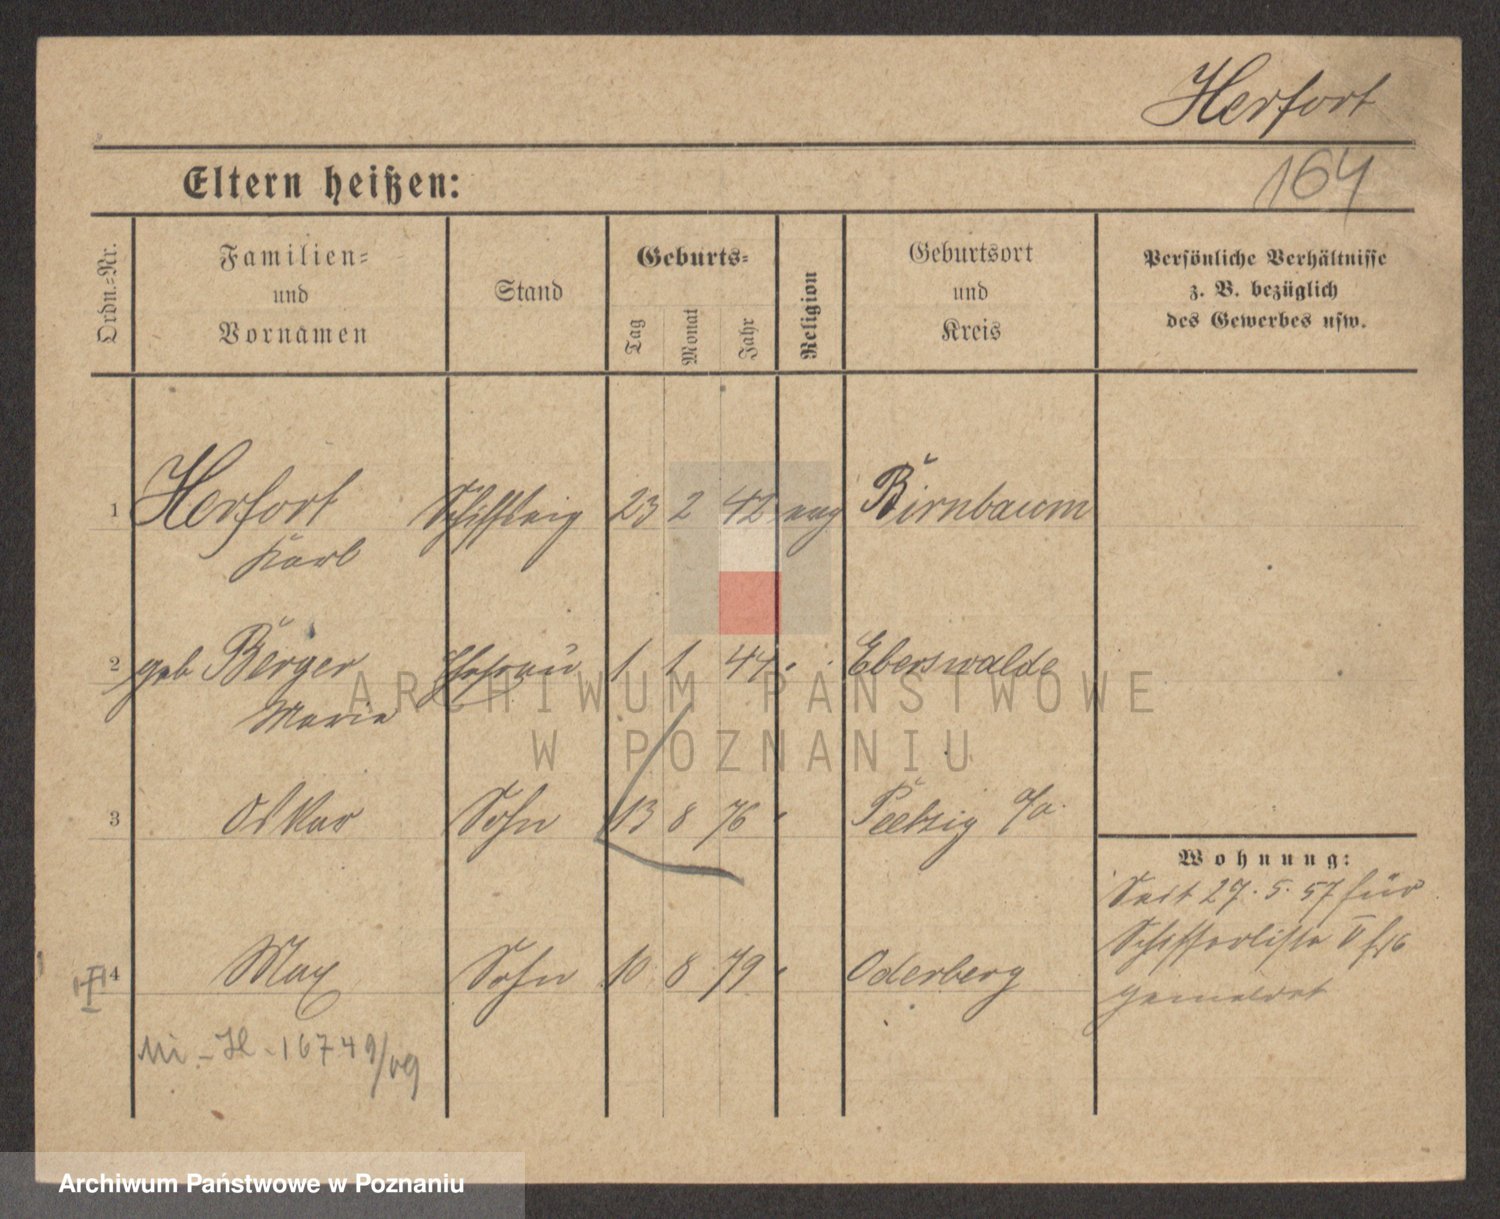 Herfort
164
Eltern heißen:
Ordn.-Nr.
Familien-
und
Vornamen
Stand
Geburts-
Tag
Monat
Jahr
Religion
Geburtsort
und
Kreis
Persönliche Verhältnisse
z. B. bezüglich
des Gewerbes usw.
1 Herfort 23 2 42 evg Birnbaum
Karl
2 geb Berger Ehefrau 1 1 44 " Eberswalde
Marie
3 Oskar Sohn 13 8 76 " Peetzig a/o
4 Max Sohn 10 8 79 " Oderberg
Wohnung:
Seit 27. 5. 57 für
Schifferliste V
gemeldet
H - 16749/09
ARCHIWUM PAŃSTWOWE
W POZNANIU
Archiwum Państwowe w Poznaniu